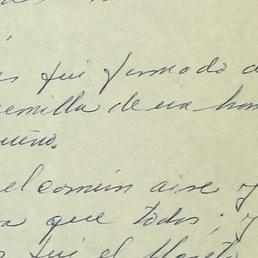 fui formado d
semilla de un hom
ueño.
el común aire y
a que todos; y
fui el